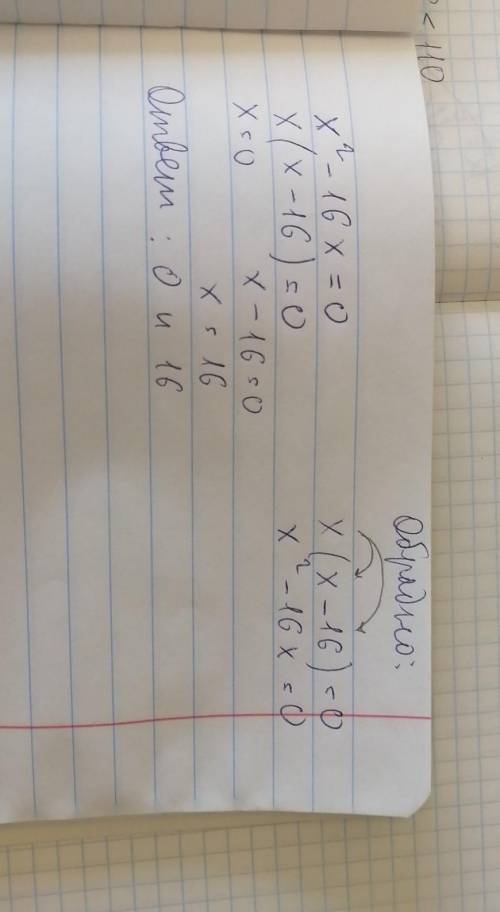 x² - 16x = 0
x(x - 16) = 0
x = 0 x - 16 = 0
x = 16
Ответ: 0 и 16
Обрадно:
x(x - 16) = 0
x² - 16x = 0
< 110